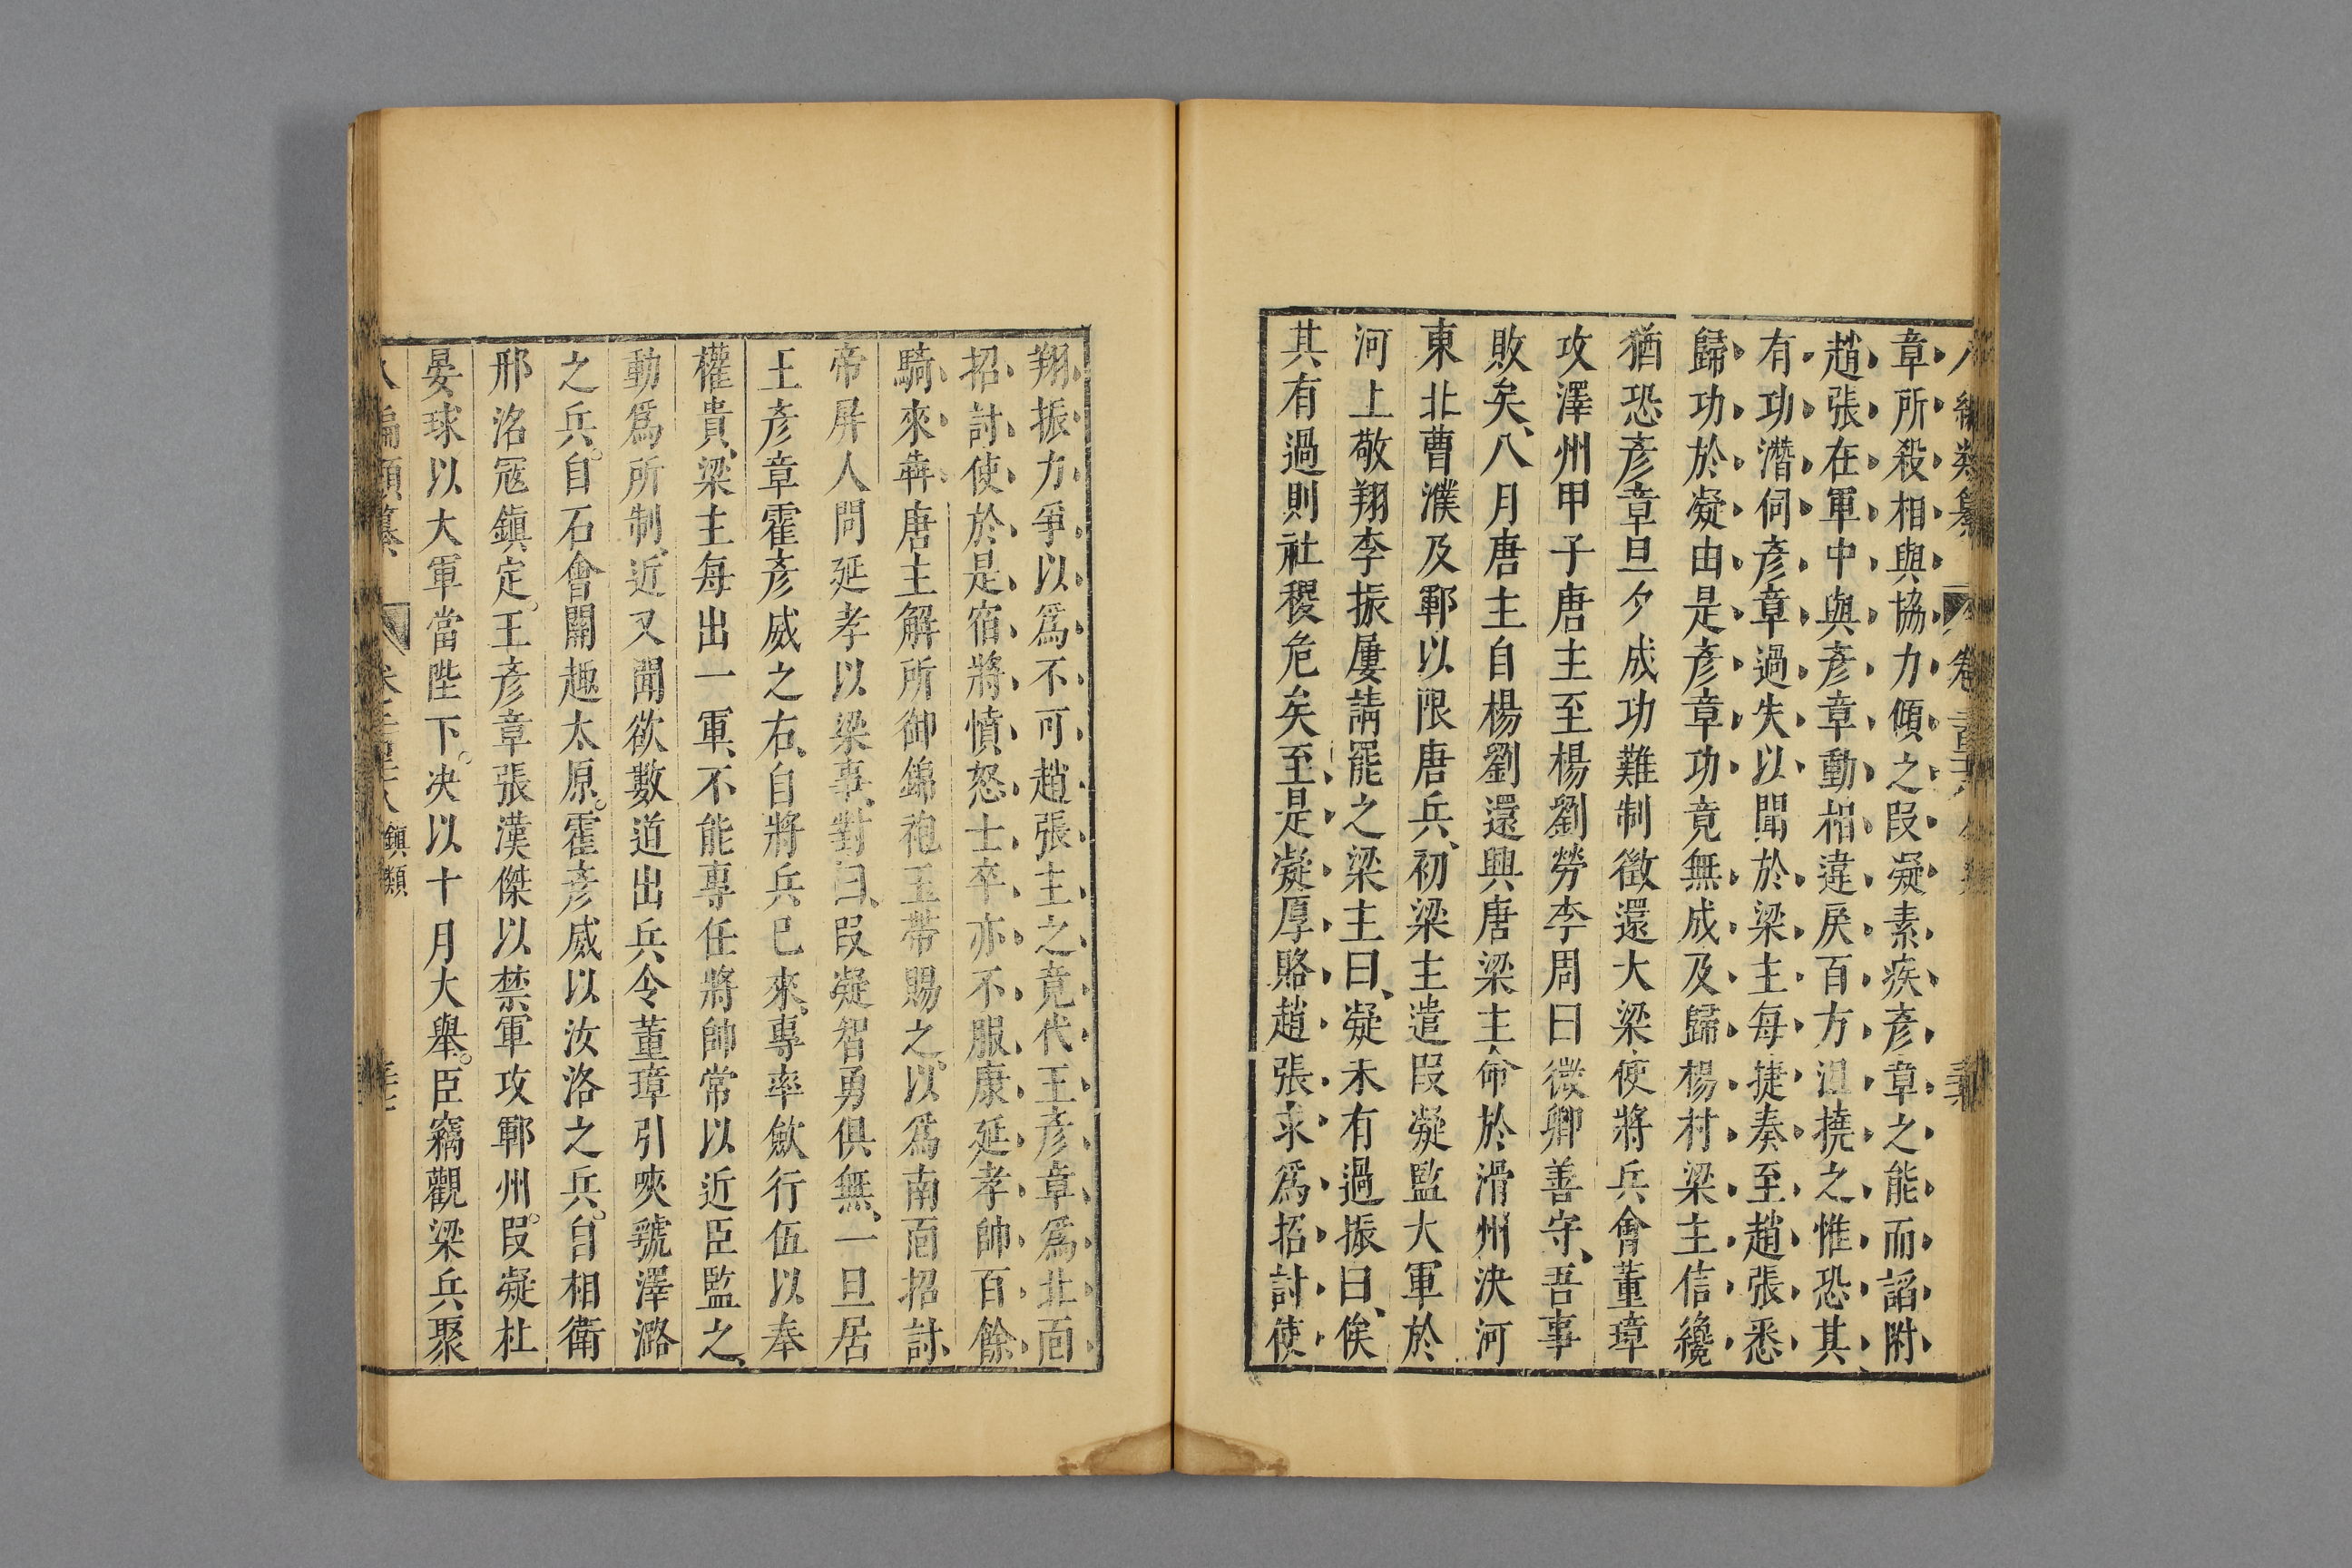 章所殺相與協力傾之叚凝素疾彥章之能而諂附
趙張在軍中與彥章動相違戾百方沮撓之惟恐其
有功潛伺彥章過失以聞於梁主每捷奏至趙張悉
歸功於凝由是彥章功竟無成及歸楊村梁主信纔
猶恐彥章旦夕成功難制徵還大梁使將兵會董璋
攻澤州甲子唐主至楊劉勞李周曰微卿善守、吾事
敗矣、八月唐主自楊劉還興唐梁主命於滑州決河
東北曹濮及鄆以限唐兵、初梁主遣叚凝監大軍於
河上敬翔李振屢請罷之梁主曰、凝未有過振曰、俟
其有過則社稷危矣至是凝厚賂趙張求爲招討使
翔振力爭以爲不可趙張主之竟代王彥章爲北面
招討使於是宿將憤怒士卒亦不服康延孝帥百餘
騎來犇唐主解所御錦袍玉帶賜之。以爲南面招討
帝屏人問延孝以梁事、對曰、叚凝智勇俱無、一旦居
王彥章霍彥威之右、自將兵已來、專率歛行伍以奉
權貴、梁主每出一軍、不能專任將帥常以近臣監之、
動爲所制、近又聞欲數道出兵、令董璋引陝虢澤潞
之兵。自石會關趣太原。霍彥威以汝洛之兵。自相衛
邢洺冦鎭定。王彥章張漢傑以禁軍攻鄆州。叚凝杜
晏球以大軍當陛下。決以十月大舉。臣竊觀梁兵聚
編類纂 鎭類